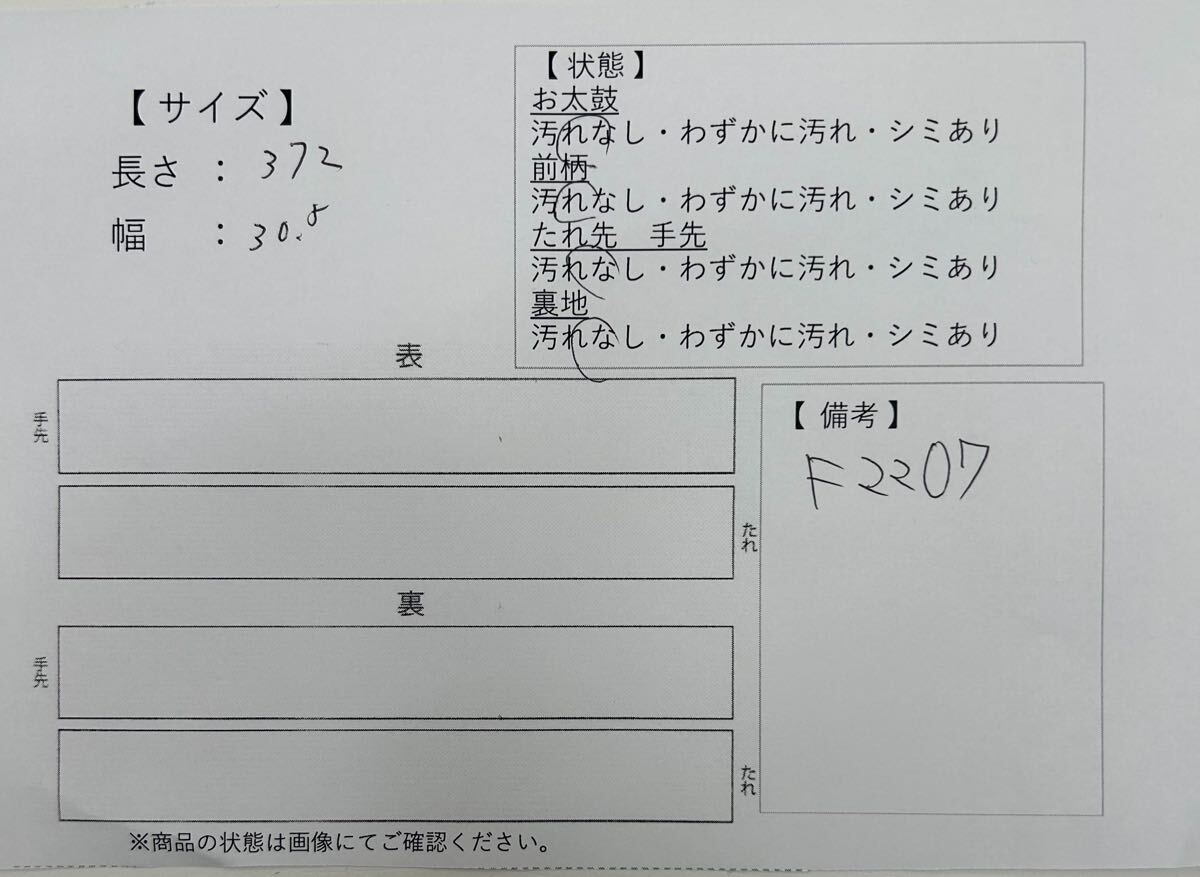 【サイズ】
長さ : 372
幅 : 30.8
【状態】
お太鼓
汚れなし・わずかに汚れ・シミあり
前柄
汚れなし・わずかに汚れ・シミあり
たれ先 手先
汚れなし・わずかに汚れ・シミあり
裏地
汚れなし・わずかに汚れ・シミあり
表
手先
たれ
裏
手先
たれ
【備考】
F2207
※商品の状態は画像にてご確認ください。